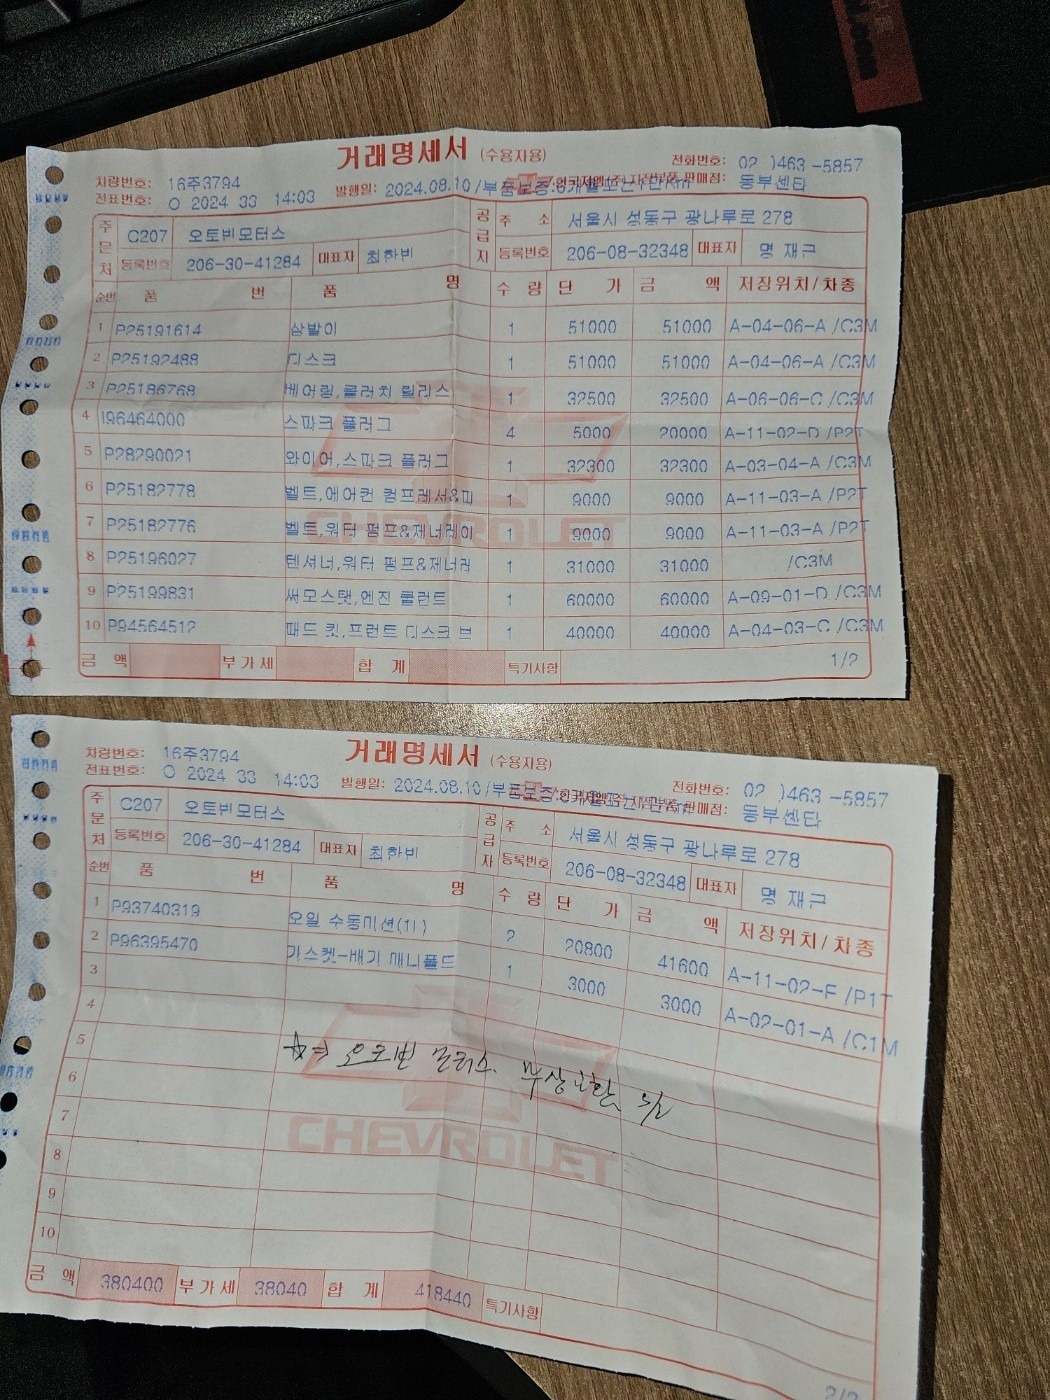 거래명세서 (수용자용)
차량번호: 16주3794
전화번호: 02 )463 -5857
전표번호: O 2024 33 14:03 발행일: 2024.08.10 /부품보증:6개월또는1만Km 판매점: 동부센타
주문처 C207 오토빈모터스 공급자 주 소 서울시 성동구 광나루로 278
등록번호 206-30-41284 대표자 최한비 등록번호 206-08-32348 대표자 명 재근
순번 품 번 품 명 수 량 단 가 금 액 저장위치/차종
1 P25191614 삼발이 1 51000 51000 A-04-06-A /C3M
2 P25192488 디스크 1 51000 51000 A-04-06-A /C3M
3 P25186768 베어링,클러치 릴리스 1 32500 32500 A-06-06-C /C3M
4 I96464000 스파크 플러그 4 5000 20000 A-11-02-D /P2T
5 P28290021 와이어,스파크 플러그 1 32300 32300 A-03-04-A /C3M
6 P25182778 벨트,에어컨 컴프레셔&파 1 9000 9000 A-11-03-A /P2T
7 P25182776 벨트,워터 펌프&제너레이 1 9000 9000 A-11-03-A /P2T
8 P25196027 텐셔너,워터 펌프&제너러 1 31000 31000 /C3M
9 P25199831 써모스탯,엔진 쿨런트 1 60000 60000 A-09-01-D /C3M
10 P94564512 패드 킷,프런트 디스크 브 1 40000 40000 A-04-03-C /C3M
CHEVROLET
금 액 부가세 합 계 특기사항 1/2
거래명세서 (수용자용)
차량번호: 16주3794
전화번호: 02 )463 -5857
전표번호: O 2024 33 14:03 발행일: 2024.08.10 /부품보증:6개월또는1만Km 판매점: 동부센타
주문처 C207 오토빈모터스 공급자 주 소 서울시 성동구 광나루로 278
등록번호 206-30-41284 대표자 최한비 등록번호 206-08-32348 대표자 명 재근
순번 품 번 품 명 수 량 단 가 금 액 저장위치/차종
1 P93740319 오일 수동미션(1l) 2 20800 41600 A-11-02-F /P1T
2 P96395470 가스켓-배기 매니폴드 1 3000 3000 A-02-01-A /C1M
3
4
5
☆ 오토빈 모터스. 무상교환
6
7
CHEVROLET
8
9
10
금 액 380400 부가세 38040 합 계 418440 특기사항
2/2